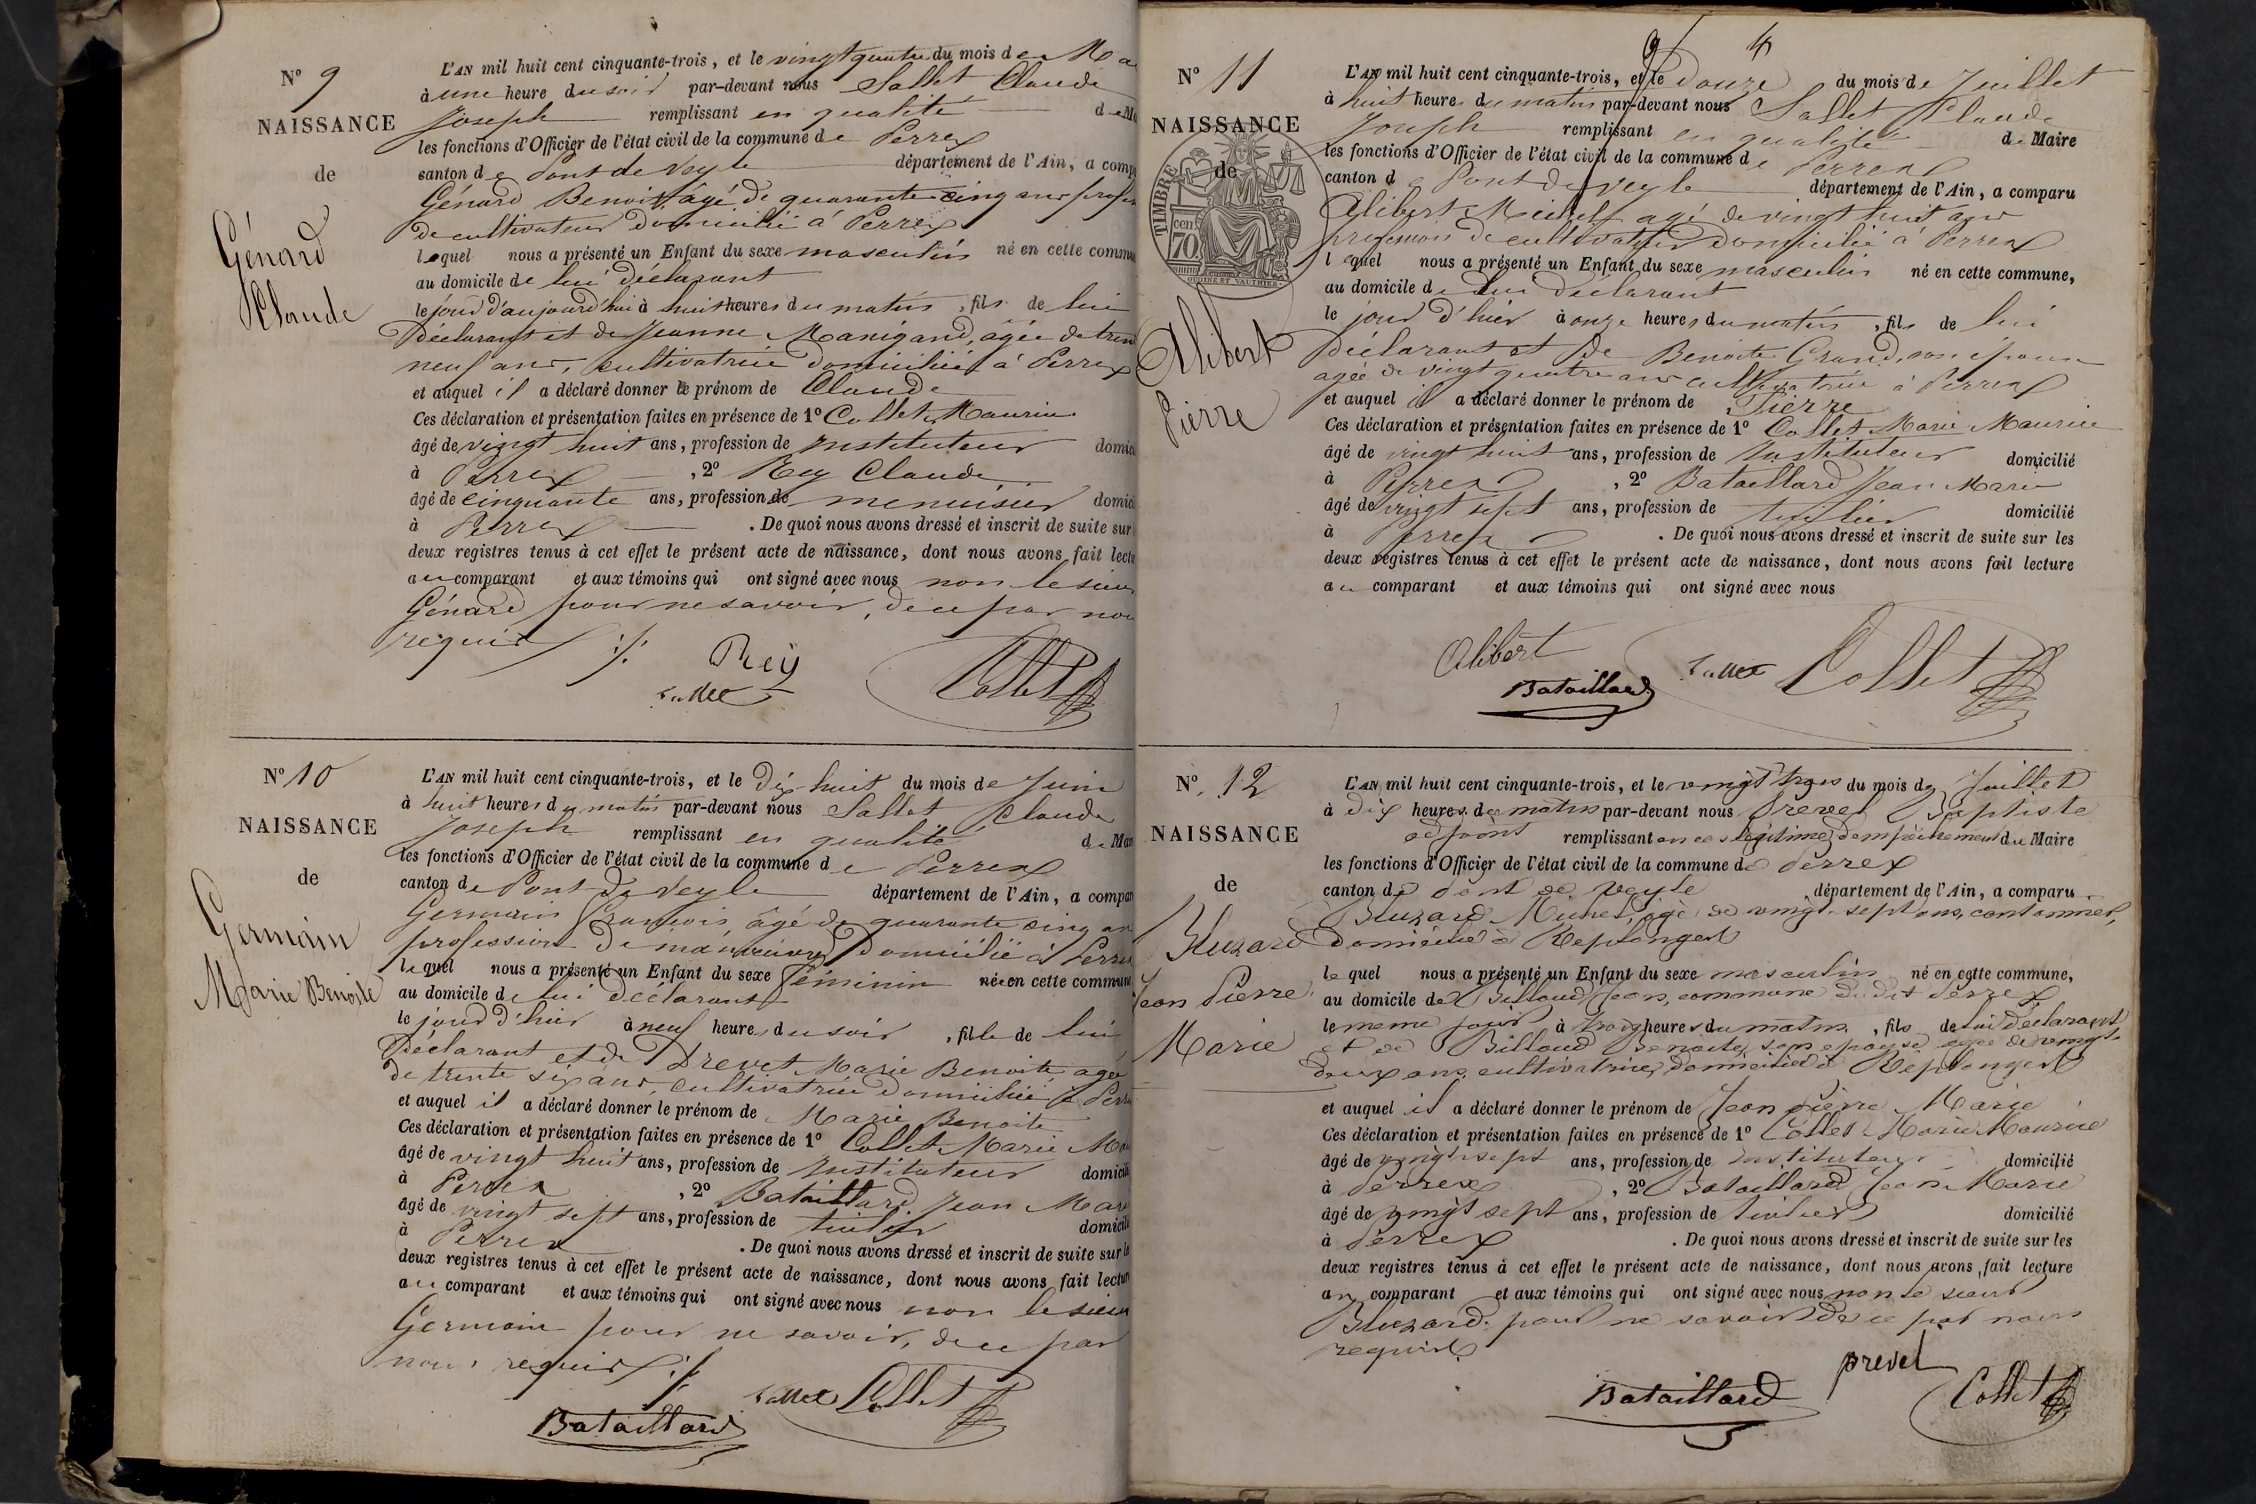 N° 9
NAISSANCE
de
Génard
Claude
L'AN mil huit cent cinquante-trois, et le vingt quatre du mois de Ma
à une heure du soir par-devant nous Sallet Claude
Joseph remplissant en qualité de Ma
les fonctions d'Officier de l'état civil de la commune de Perrex
canton de Pont de Veyle département de l'Ain, a comp
Génard Benoit, âgé de quarante cinq ans profes
de cultivateur domicilié à Perrex
lequel nous a présenté un Enfant du sexe masculin né en cette commu
au domicile de lui déclarant
le jour d'aujourd'hui à huit heures du matin, fils de lui
Déclarant et de Jeanne Manigand, agée de tren
neuf ans, cultivatrice domiciliée à Perrex
et auquel il a déclaré donner le prénom de Claude
Ces déclaration et présentation faites en présence de 1° Collet Maurice
âgé de vingt huit ans, profession de Instituteur domici
à Perrex, 2° Rey Claude
âgé de cinquante ans, profession de menuisier domici
à Perrex. De quoi nous avons dressé et inscrit de suite sur
deux registres tenus à cet effet le présent acte de naissance, dont nous avons fait lectu
au comparant et aux témoins qui ont signé avec nous non le sieur
Génard pour ne savoir, de ce par nou
requis
Rey
Sallet
Collet
N° 10
NAISSANCE
de
Germain
Marie Benoite
L'AN mil huit cent cinquante-trois, et le Dix huit du mois de Juin
à huit heures du matin par-devant nous Sallet Claude
Joseph remplissant en qualité de Mai
les fonctions d'Officier de l'état civil de la commune de Perrex
canton de Pont de Veyle département de l'Ain, a compar
Germain François, âgé de quarante cinq an
profession de manoeuvre domicilié à Perrex
lequel nous a présenté un Enfant du sexe féminin née en cette commune
au domicile de lui déclarant
le jour d'hier à neuf heures du soir, fille de lui
Déclarant et de Drevet Marie Benoite agée
de trente six ans, cultivatrice domiciliée à Perre
et auquel il a déclaré donner le prénom de Marie Benoite
Ces déclaration et présentation faites en présence de 1° Collet Marie Mau
âgé de vingt huit ans, profession de Instituteur domicili
à Perrex, 2° Bataillard Jean Mari
âgé de vingt sept ans, profession de tuilier domicili
à Perrex. De quoi nous avons dressé et inscrit de suite sur le
deux registres tenus à cet effet le présent acte de naissance, dont nous avons fait lectur
au comparant et aux témoins qui ont signé avec nous non le sieur
Germain pour ne savoir, de ce par
nous requis
Sallet Collet
Bataillard
9 4
N° 11
NAISSANCE
de
TIMBRE
70 cen
Alibert
Pierre
L'AN mil huit cent cinquante-trois, et le Douze du mois de Juillet
à huit heures du matin par-devant nous Sallet Claude
Joseph remplissant en qualité de Maire
les fonctions d'Officier de l'état civil de la commune de Perrex
canton de Pont de Veyle département de l'Ain, a comparu
Alibert Michel, agé de vingt huit ans
profession de cultivateur domicilié à Perrex
lequel nous a présenté un Enfant du sexe masculin né en cette commune,
au domicile de lui déclarant
le jour d'hier à onze heures du matin, fils de lui
Déclarant et de Benoite Grand, son épouse
agée de vingt quatre ans cultivatrice à Perrex
et auquel il a déclaré donner le prénom de Pierre
Ces déclaration et présentation faites en présence de 1° Collet Marie Maurice
âgé de vingt huit ans, profession de Instituteur domicilié
à Perrex, 2° Bataillard Jean Marie
âgé de vingt sept ans, profession de tuilier domicilié
à Perrex. De quoi nous avons dressé et inscrit de suite sur les
deux registres tenus à cet effet le présent acte de naissance, dont nous avons fait lecture
au comparant et aux témoins qui ont signé avec nous
Alibert Sallet Collet
Bataillard
N° 12
NAISSANCE
de
Bluzard
Jean Pierre
Marie
L'AN mil huit cent cinquante-trois, et le vingt trois du mois de Juillet
à dix heures du matin par-devant nous Prevel Baptiste
adjoint remplissant en cas légitime d'empêchement du Maire
les fonctions d'Officier de l'état civil de la commune de Perrex
canton de Pont de Veyle département de l'Ain, a comparu
Bluzard Michel, agé de vingt sept ans, cantonnier,
domicilié à Replonges
lequel nous a présenté un Enfant du sexe masculin né en cette commune,
au domicile de Billoud Jean, commune dudit Perrex
le meme jour à trois heures du matin, fils de lui déclarant
et de Billoud Benoite, son epouse agée de vingt
deux ans, cultivatrice, domiciliée à Replonges
et auquel il a déclaré donner le prénom de Jean Pierre Marie
Ces déclaration et présentation faites en présence de 1° Collet Marie Maurice
âgé de vingt sept ans, profession de Instituteur domicilié
à Perrex, 2° Bataillard Jean Marie
âgé de vingt sept ans, profession de tuilier domicilié
à Perrex. De quoi nous avons dressé et inscrit de suite sur les
deux registres tenus à cet effet le présent acte de naissance, dont nous avons fait lecture
au comparant et aux témoins qui ont signé avec nous non le sieur
Bluzard pour ne savoir de ce par nous
requis
prevel
Bataillard Collet